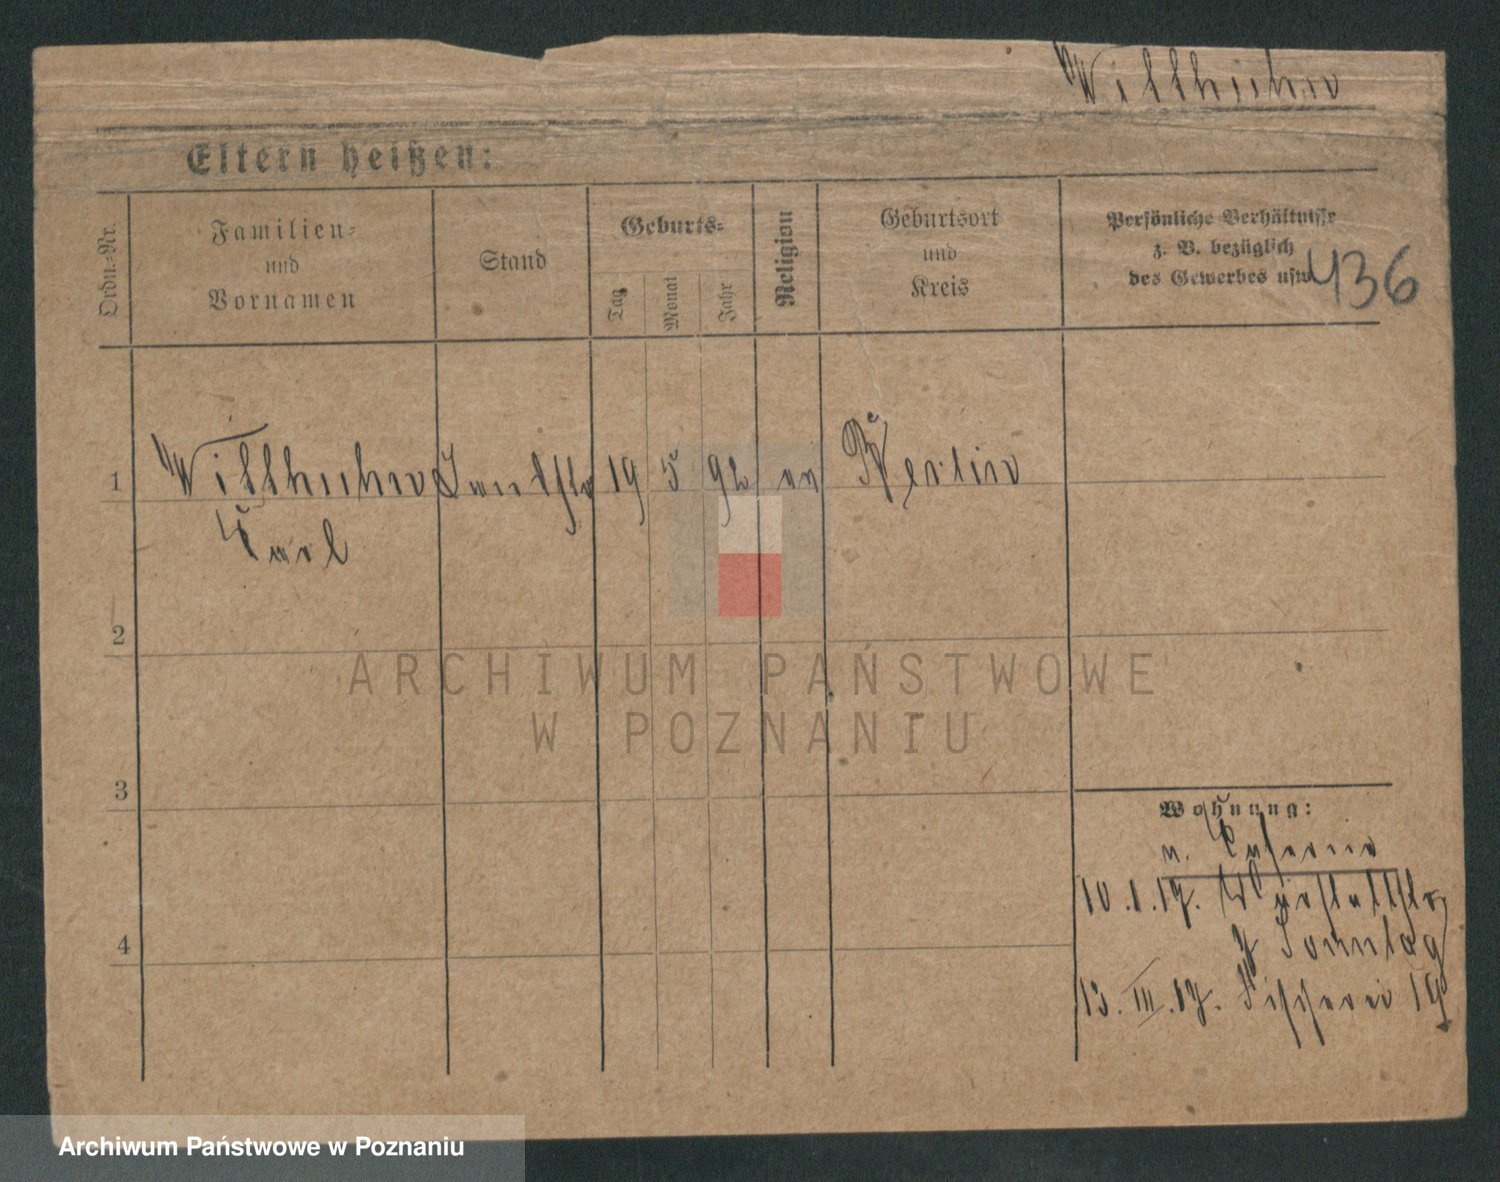 Willhuhn
Eltern heißen:
Ordn.-Nr.
Familien-
und
Vornamen
Stand
Geburts-
Tag
Monat
Jahr
Religion
Geburtsort
und
Kreis
Persönliche Verhältnisse
z. B. bezüglich
des Gewerbes usw.
436
1
Willhuhn
19 5 92
Berlin
Carl
2
ARCHIWUM PAŃSTWOWE
W POZNANIU
3
Wohnung:
n. Caserne
10.1.17.
Sonntag
4
13.III.17. Fischerei 19
Archiwum Państwowe w Poznaniu